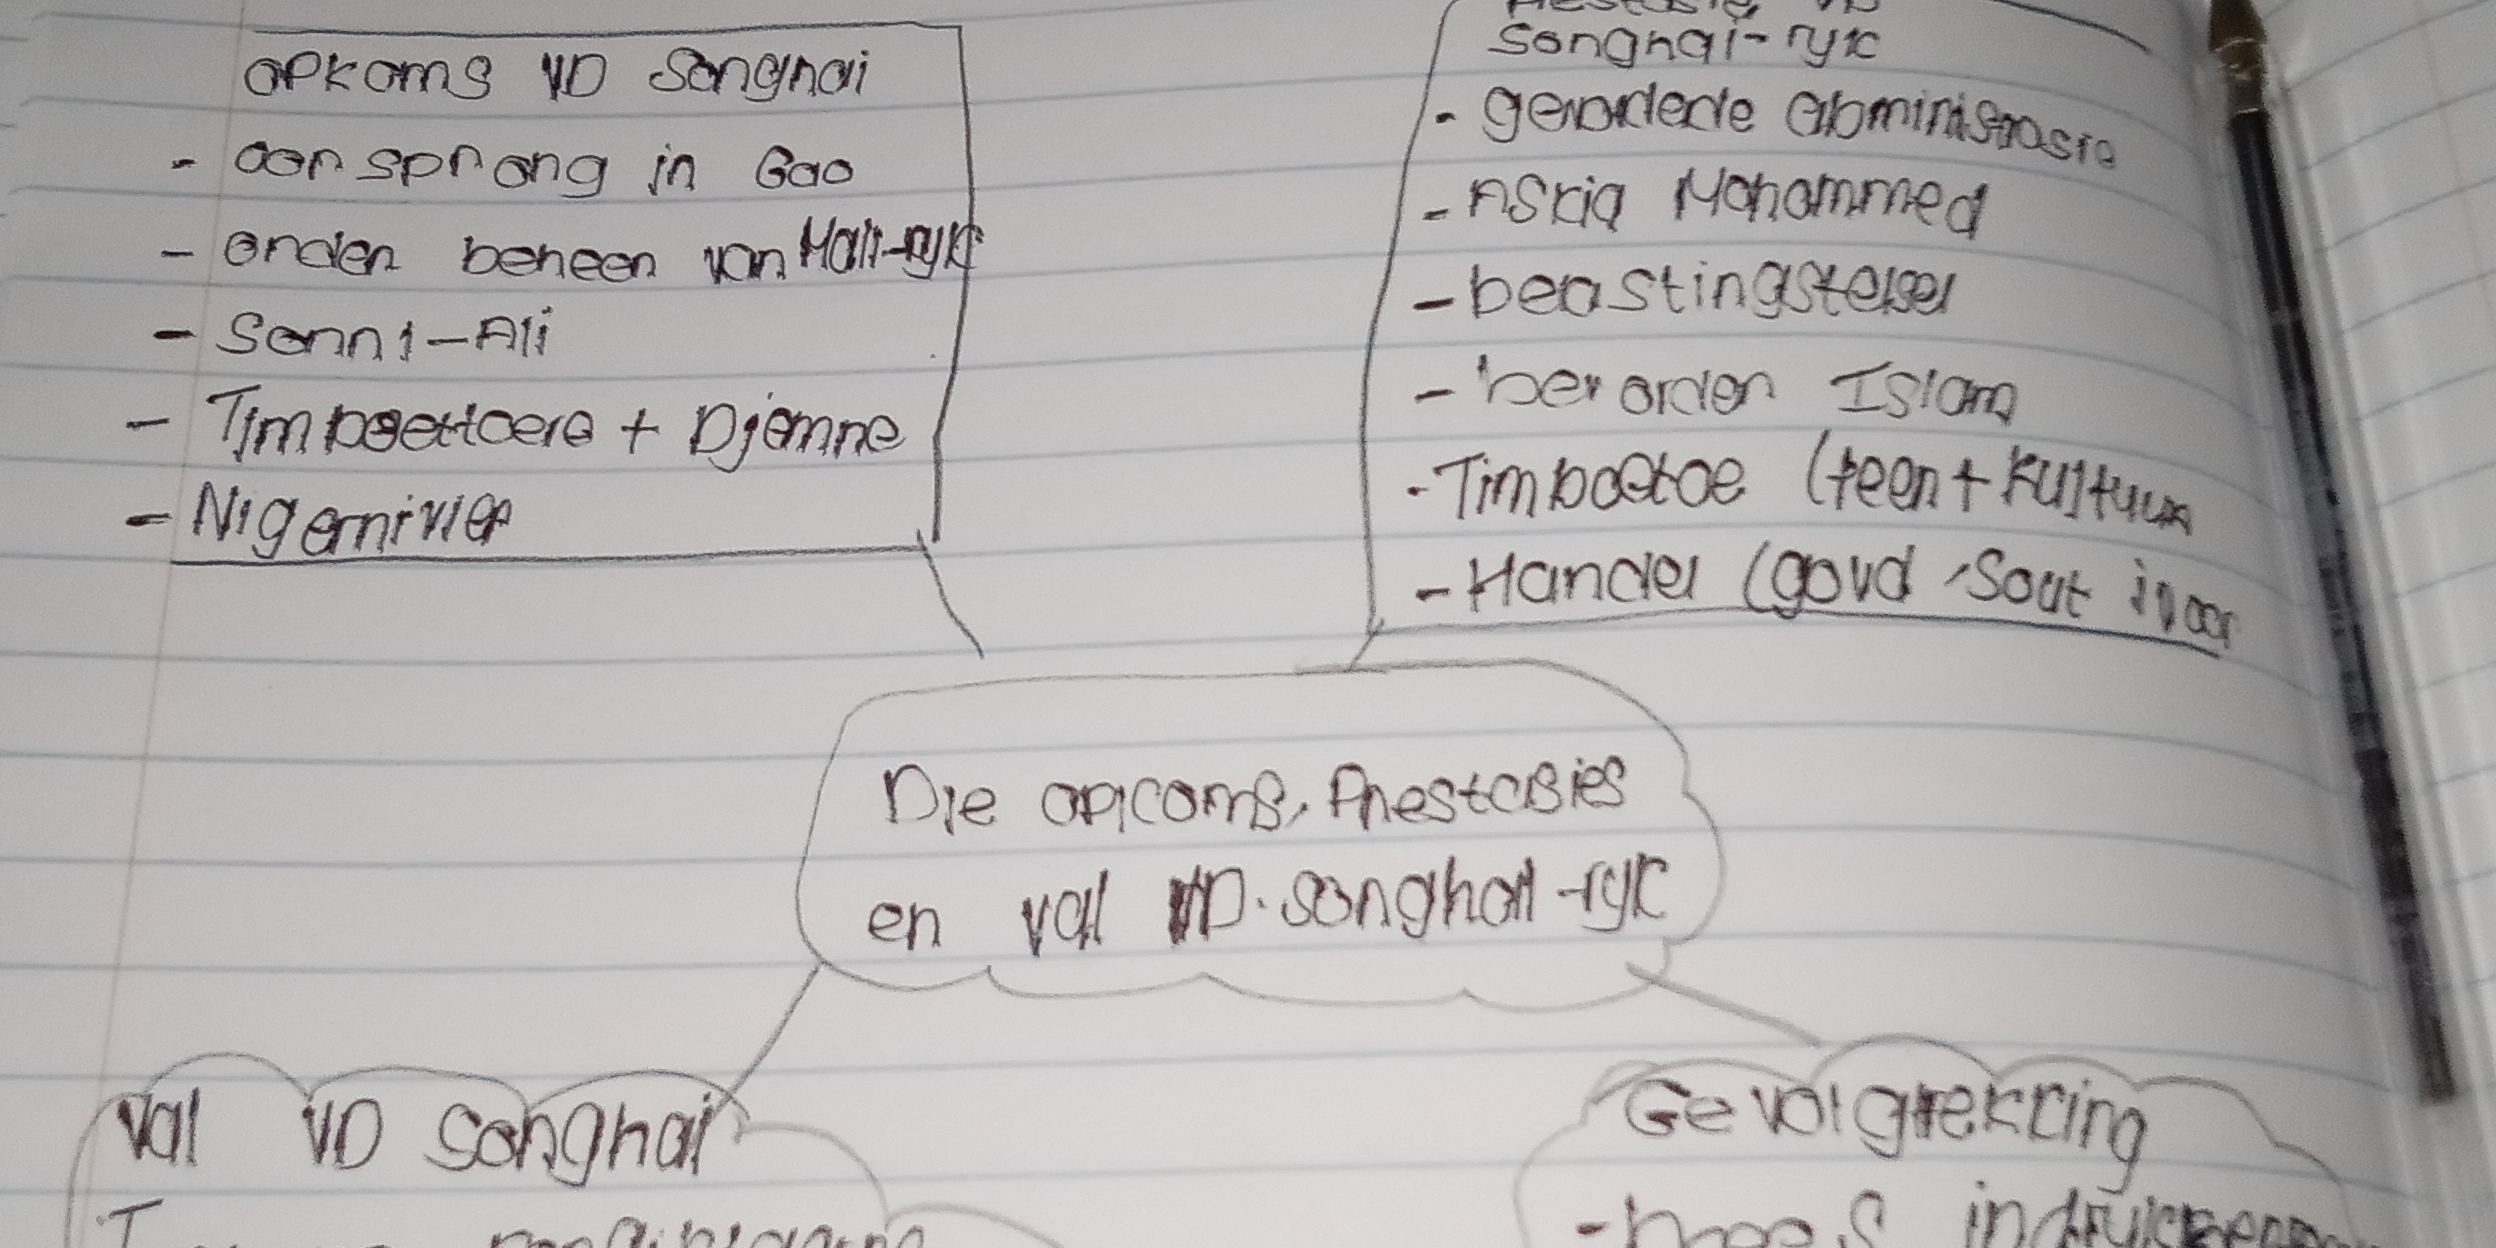 opkoms VD Songhai
- oorsprong in Gao
- onder beheer van Mali-ryk
- Sonni-Ali
- Timboektoere + Djenne
- Nigerrivier
Songhai-ryk
- gevorderde administrasie
- Askia Mohammed
- beastingstelsel
- bevorder Islam
- Timboetoe (leer + kultuur
- Handel (goud, Sout ivoor
Die opkoms, Prestasies
en val VD. Songhai-ryk
Val VD Songhai
Gevolgtrekking
- indrukke